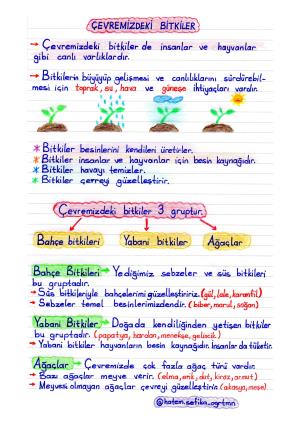 ÇEVREMİZDEKİ BİTKİLER
→ Çevremizdeki bitkiler de insanlar ve hayvanlar
gibi canlı varlıklardır.
→ Bitkilerin büyüyüp gelişmesi ve canlılıklarını sürdürebil-
mesi için toprak, su, hava ve güneşe ihtiyaçları vardır.
* Bitkiler besinlerini kendileri üretirler.
* Bitkiler insanlar ve hayvanlar için besin kaynağıdır.
* Bitkiler havayı temizler.
* Bitkiler çevreyi güzelleştirir.
Çevremizdeki bitkiler 3 gruptur.
Bahçe bitkileri Yabani bitkiler Ağaçlar
Bahçe Bitkileri → Yediğimiz sebzeler ve süs bitkileri
bu gruptadır.
→ Süs bitkileriyle bahçelerimi güzelleştiririz. (gül, lale, karanfil)
→ Sebzeler temel besinlerimizdendir. (biber, marul, soğan)
Yabani Bitkiler → Doğada kendiliğinden yetişen bitkiler
bu gruptadır. (papatya, hardan, menekşe, gelincik)
→ Yabani bitkiler hayvanların besin kaynağıdır. İnsanlar da tüketir.
Ağaçlar → Çevremizde çok fazla ağaç türü vardır.
→ Bazı ağaçlar meyve verir. (elma, erik, dut, kiraz, armut)
→ Meyvesi olmayan ağaçlar çevreyi güzelleştirir. (akasya, meşe)
@hatem.sefika_ogrtmn